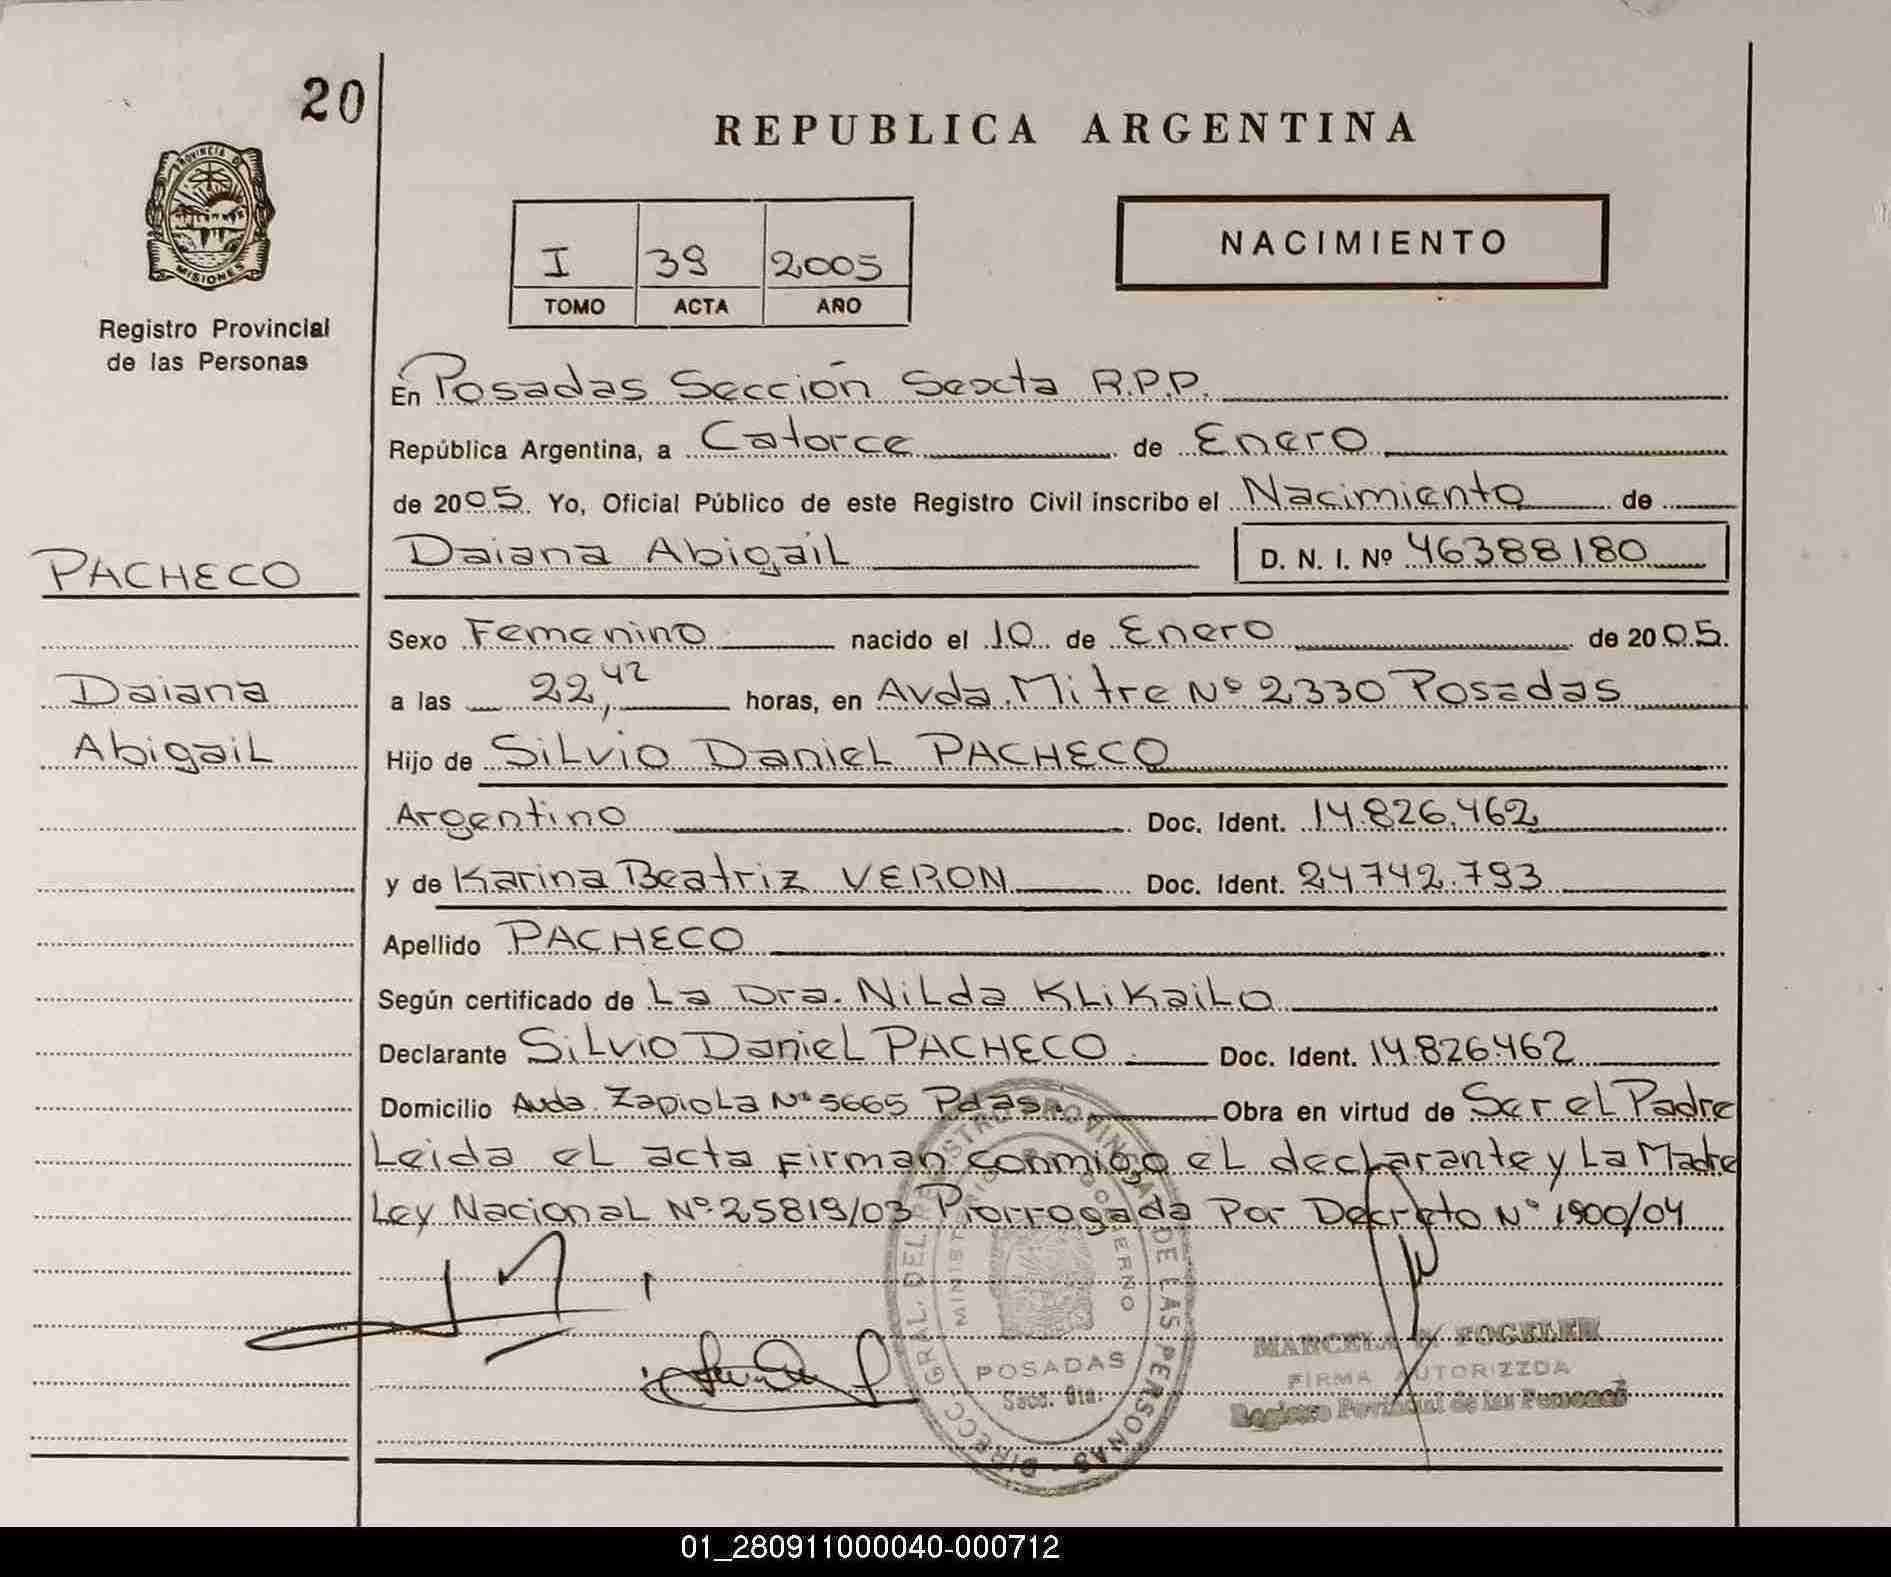 20
PROVINCIA DE
MISIONES
Registro Provincial
de las Personas
REPUBLICA ARGENTINA
I 39 2005
TOMO ACTA AÑO
NACIMIENTO
En Posadas Sección Sexta R.P.P.
República Argentina, a Catorce de Enero
de 2005. Yo, Oficial Público de este Registro Civil inscribo el Nacimiento de
Daiana Abigail D. N. I. Nº 46388180
PACHECO
Daiana
Abigail
Sexo Femenino nacido el 10 de Enero de 2005.
a las 22,42 horas, en Avda. Mitre Nº 2330 Posadas
Hijo de Silvio Daniel PACHECO
Argentino Doc. Ident. 14.826.462
y de Karina Beatriz VERON Doc. Ident. 24742.793
Apellido PACHECO
Según certificado de La Dra. Nilda Klikailo
Declarante Silvio Daniel PACHECO Doc. Ident. 14.826.462
Domicilio Avda. Zapiola Nº 5665 Pdas. Obra en virtud de Ser el Padre
Leida el acta firman conmigo el declarante y La Madre
Ley Nacional Nº 25819/03 Prorrogada Por Decreto Nº 1900/04
DIRECC. GRAL. DEL REGISTRO PROVINCIAL DE LAS PERSONAS
MINISTERIO GOBIERNO
POSADAS
Secc. 6ta.
MARCELA FOGELER
FIRMA AUTORIZZDA
Registro Provincial de las Personas
01_280911000040-000712